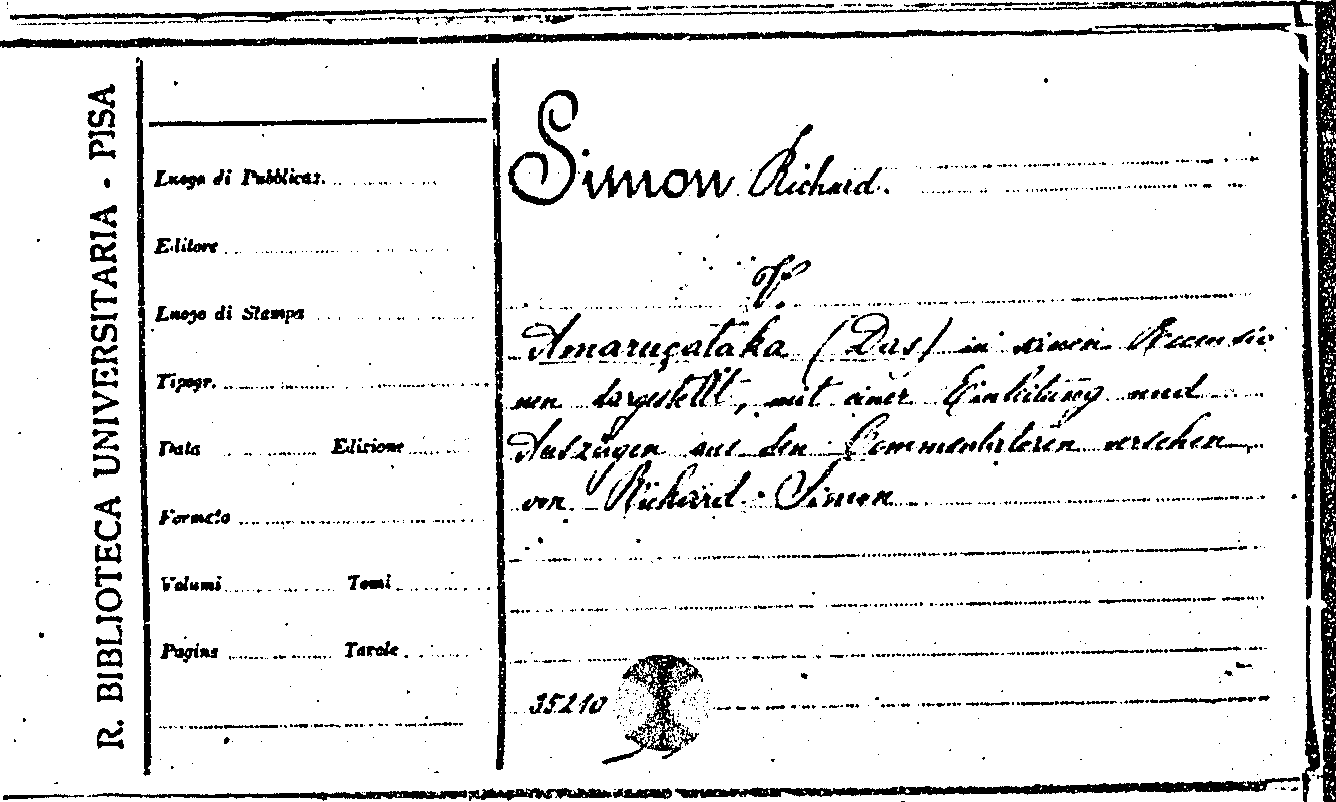 R. BIBLIOTECA UNIVERSITARIA - PISA
Luogo di Pubblicaz.
Editore
Luogo di Stampa
Tipogr.
Data Edizione
Formato
Volumi Tomi
Pagine Tavole
Simon Richard.
V.
Amaruçataka (Das) in seinen Recensio
nen dargestellt, mit einer Einleitung und
Auszügen aus den Commentatoren versehen
von Richard Simon
35210